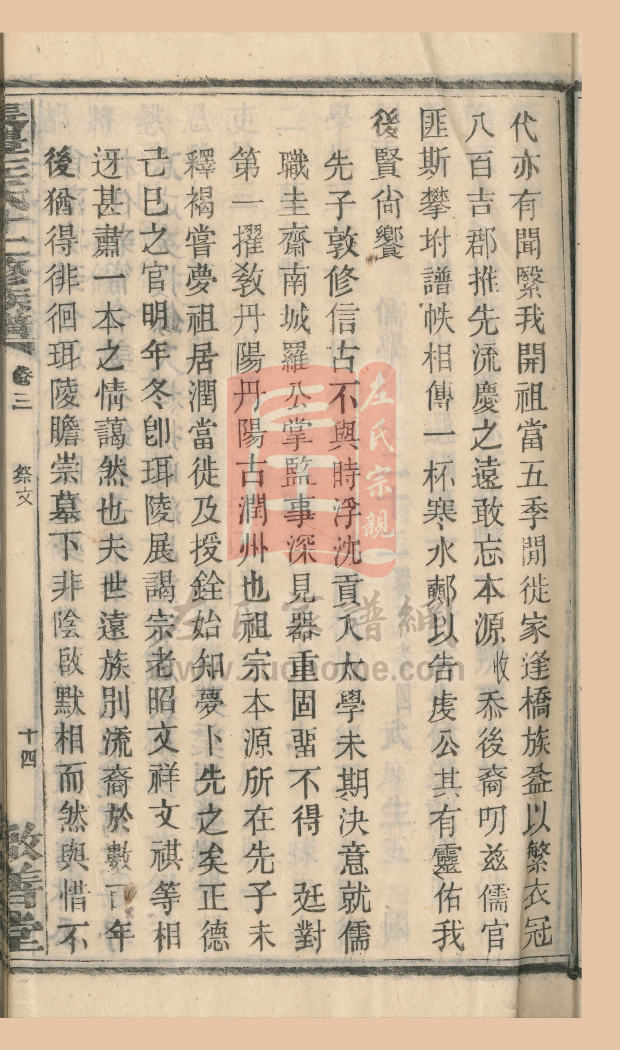 代亦有聞繄我開祖當五季閒徙家逢橋族益以繁衣冠
八百吉郡推先流慶之遠敢忘本源收忝後裔叨兹儒官
匪斯攀坿譜帙相傳一杯寒水鄭以告虔公其有靈佑我
後賢尙饗
先子敦修信古不與時浮沈貢入太學未期決意就儒
職圭齋南城羅公掌監事深見器重固畱不得 廷對
第一擢敎丹陽丹陽古潤州也祖宗本源所在先子未
釋褐嘗夢祖居潤當徙及授銓始知夢卜先之矣正德
己巳之官明年冬卽珥陵展謁宗老昭文祥文祺等相
迓甚肅一本之情藹然也夫世遠族別流裔於數百年
後猶得徘徊珥陵瞻崇墓下非陰啟默相而然與惜不
左氏十二修族譜
卷三
祭文
十四
敬善堂
左氏宗親
左氏 譜網
www.zuohome.com